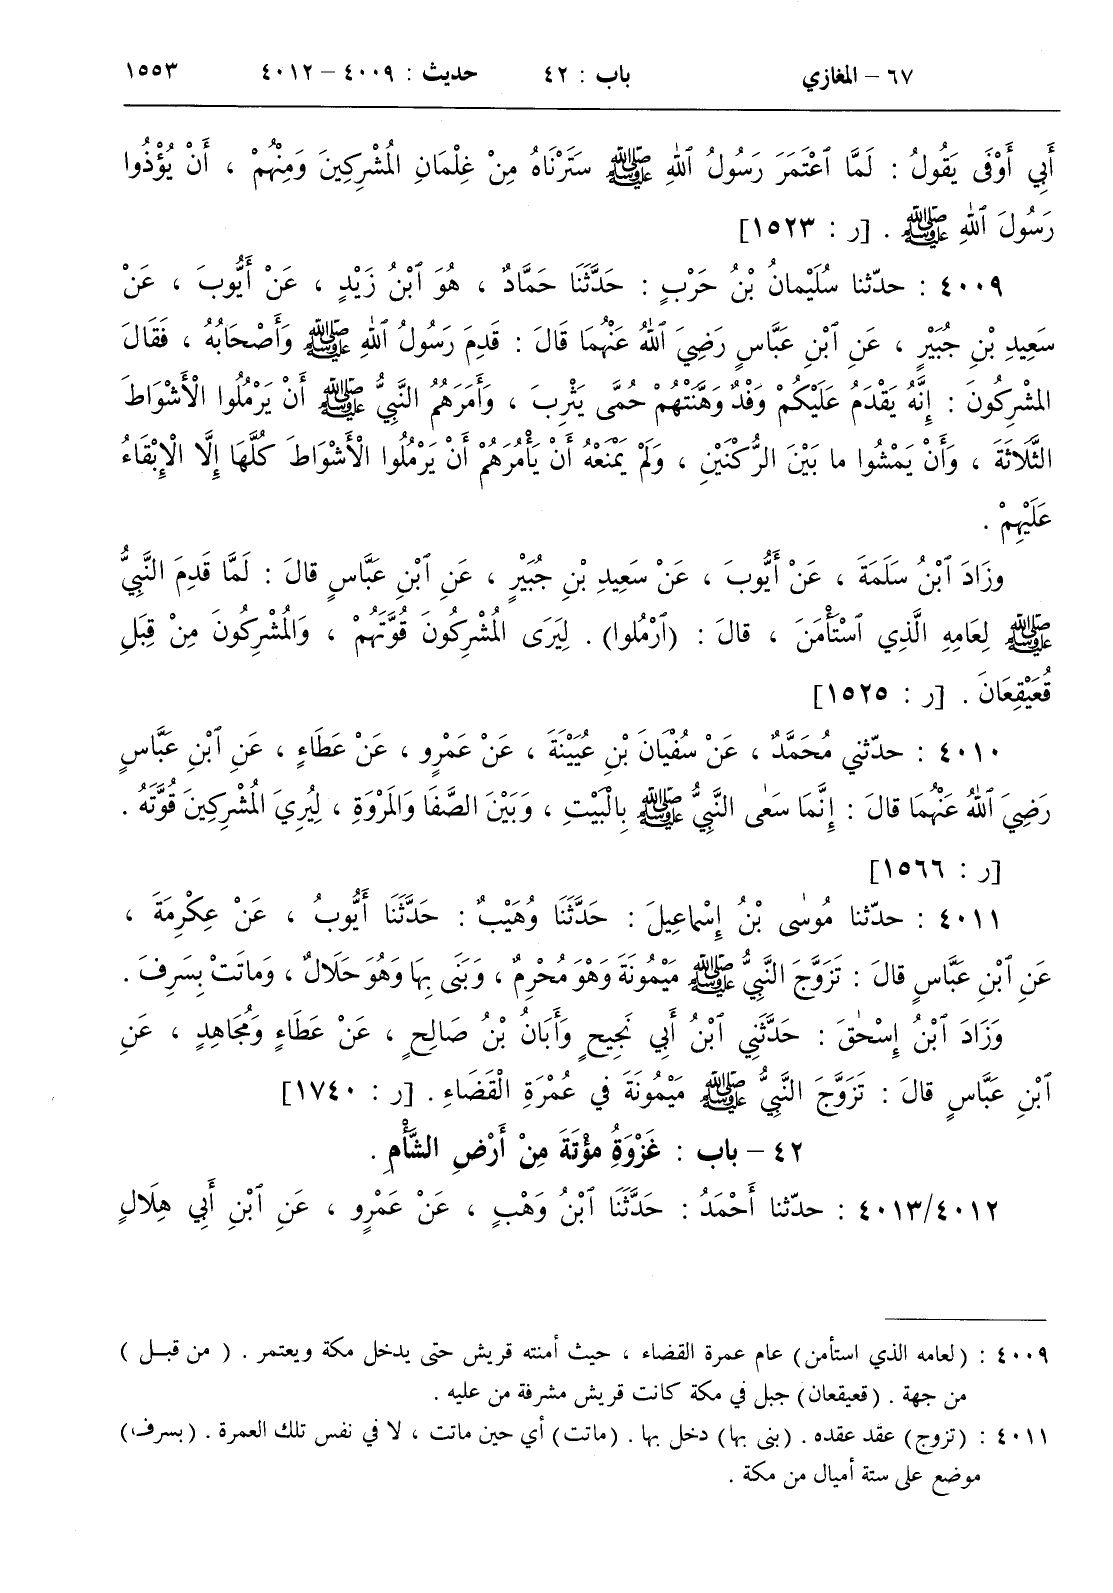 ٦٧ – المغازي باب : ٤٢ حديث : ٤٠٠٩ – ٤٠١٢ ١٥٥٣
أَبِي أَوْفَى يَقُولُ : لَمَّا ٱعْتَمَرَ رَسُولُ ٱللهِ ﷺ سَتَرْنَاهُ مِنْ غِلْمَانِ الْمُشْرِكِينَ وَمِنْهُمْ ، أَنْ يُؤْذُوا
رَسُولَ ٱللهِ ﷺ . [ر : ١٥٢٣]
٤٠٠٩ : حدّثنا سُلَيْمانُ بْنُ حَرْبٍ : حَدَّثَنَا حَمَّادٌ ، هُوَ ٱبْنُ زَيْدٍ ، عَنْ أَيُّوبَ ، عَنْ
سَعِيدِ بْنِ جُبَيْرٍ ، عَنِ ٱبْنِ عَبَّاسٍ رَضِيَ ٱللهُ عَنْهُمَا قَالَ : قَدِمَ رَسُولُ ٱللهِ ﷺ وَأَصْحَابُهُ ، فَقَالَ
المُشْرِكُونَ : إِنَّهُ يَقْدَمُ عَلَيْكُمْ وَفْدٌ وَهَنَتْهُمْ حُمَّى يَثْرِبَ ، وَأَمَرَهُمُ النَّبِيُّ ﷺ أَنْ يَرْمُلُوا الْأَشْوَاطَ
الثَّلَاثَةَ ، وَأَنْ يَمْشُوا ما بَيْنَ الرُّكْنَيْنِ ، وَلَمْ يَمْنَعْهُ أَنْ يَأْمُرَهُمْ أَنْ يَرْمُلُوا الْأَشْوَاطَ كُلَّهَا إِلَّا الْإِبْقَاءُ
عَلَيْهِمْ .
وزَادَ ٱبْنُ سَلَمَةَ ، عَنْ أَيُّوبَ ، عَنْ سَعِيدِ بْنِ جُبَيْرٍ ، عَنِ ٱبْنِ عَبَّاسٍ قالَ : لَمَّا قَدِمَ النَّبِيُّ
ﷺ لِعَامِهِ الَّذِي ٱسْتَأْمَنَ ، قالَ : (ٱرْمُلوا) . لِيَرَى المُشْرِكُونَ قُوَّتَهُمْ ، وَالْمُشْرِكُونَ مِنْ قِبَلِ
قُعَيْقِعَانَ . [ر : ١٥٢٥]
٤٠١٠ : حدّثني مُحَمَّدٌ ، عَنْ سُفْيَانَ بْنِ عُيَيْنَةَ ، عَنْ عَمْرٍو ، عَنْ عَطَاءٍ ، عَنِ ٱبْنِ عَبَّاسٍ
رَضِيَ ٱللهُ عَنْهُمَا قالَ : إِنَّمَا سَعٰى النَّبِيُّ ﷺ بِالْبَيْتِ ، وَبَيْنَ الصَّفَا وَالمَرْوَةِ ، لِيُرِيَ الْمُشْرِكِينَ قُوَّتَهُ .
[ر : ١٥٦٦]
٤٠١١ : حدّثنا مُوسٰى بْنُ إِسْماعِيلَ : حَدَّثَنَا وُهَيْبٌ : حَدَّثَنَا أَيُّوبُ ، عَنْ عِكْرِمَةَ ،
عَنِ ٱبْنِ عَبَّاسٍ قالَ : تَزَوَّجَ النَّبِيُّ ﷺ مَيْمُونَةَ وَهْوَ مُحْرِمٌ ، وَبَنَى بِهَا وَهُوَ حَلَالٌ ، وَماتَتْ بِسَرِفَ .
وَزَادَ ٱبْنُ إِسْحٰقَ : حَدَّثَنِي ٱبْنُ أَبِي نَجِيحٍ وَأَبَانُ بْنُ صَالِحٍ ، عَنْ عَطَاءٍ وَمُجَاهِدٍ ، عَنِ
ٱبْنِ عَبَّاسٍ قالَ : تَزَوَّجَ النَّبِيُّ ﷺ مَيْمُونَةَ في عُمْرَةِ الْقَضَاءِ . [ر : ١٧٤٠]
٤٢ – باب : غَزْوَةُ مؤْتَةَ مِنْ أَرْضِ الشَّأْمِ .
٤٠١٣/٤٠١٢ : حدّثنا أَحْمَدُ : حَدَّثَنَا ٱبْنُ وَهْبٍ ، عَنْ عَمْرٍو ، عَنِ ٱبْنِ أَبِي هِلَالٍ
٤٠٠٩ : (لعامه الذي استأمن) عام عمرة القضاء ، حيث أمنته قريش حتى يدخل مكة ويعتمر . ( من قبل )
من جهة . (قعيقعان) جبل في مكة كانت قريش مشرفة من عليه .
٤٠١١ : (تزوج) عقد عقده . (بنى بها) دخل بها . (ماتت) أي حين ماتت ، لا في نفس تلك العمرة . (بسرف)
موضع على ستة أميال من مكة .